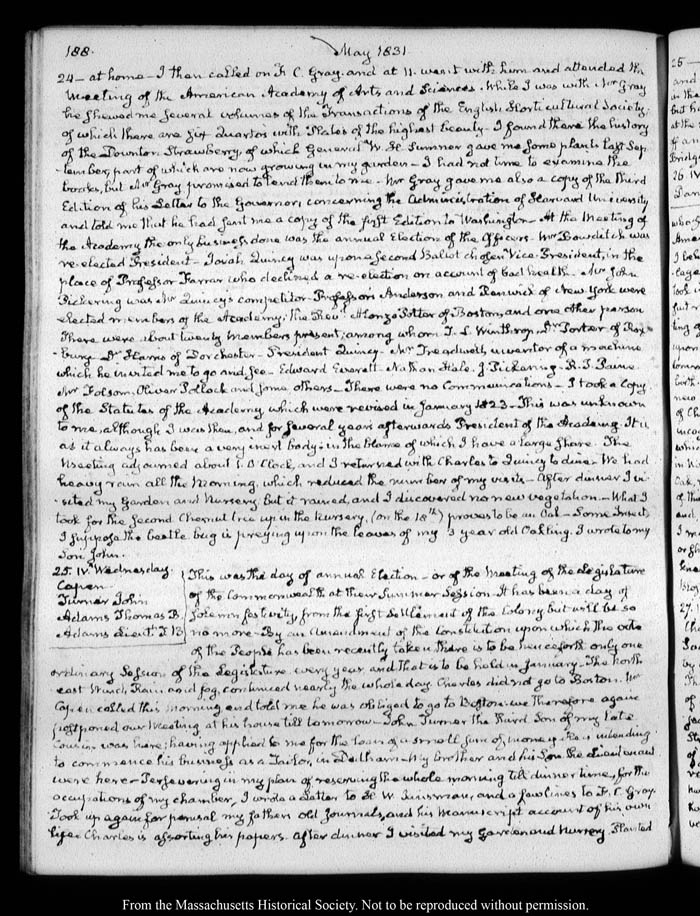 188.
May 1831.
24 — at home — I then called on F. C. Gray and at 11. went with him and attended the
Meeting of the American Academy of Arts and Sciences. While I was with Mr Gray
he shewed me several volumes of the Transactions of the English Horticultural Society,
of which there are six Quartos with Plates of the highest beauty — I found there the history
of the Downton Strawberry, of which General W. H. Sumner gave me some plants last Sep-
tember, part of which are now growing in my garden — I had not time to examine the
books, but Mr Gray promised to lend them to me — Mr Gray gave me also a copy of the third
Edition of his Letter to the Governor, concerning the Administration of Harvard University
and told me that he had sent me a copy of the first Edition to Washington — At the Meeting of
the Academy the only business done was the annual Election of the Officers — Mr Bowditch was
re-elected President — Josiah Quincy was upon a second Ballot chosen Vice-President, in the
place of Professor Farrar who declined a re-election on account of bad health. Mr John
Pickering was Mr Quincy's competitor — Professors Anderson and Renwick of New-York were
elected members of the Academy; the Revd Alonzo Potter of Boston, and one other person
There were about twenty Members present; among whom T. L. Winthrop, Dr Porter of Rox-
bury — Dr Harris of Dorchester — President Quincy — Mr Treadwell, inventor of a machine
which he invited me to go and see — Edward Everett — Nathan Hale. J. Pickering — R. T. Paine
Mr Folsom, Oliver Pollock and some others — There were no Communications — I took a Copy
of the Statutes of the Academy which were revised in January 1823 — This was unknown
to me, although I was then, and for several years afterwards President of the Academy. It is
as it always has been a very inert body; in the blame of which I have a large share. The
Meeting adjourned about 1. O'Clock, and I returned with Charles to Quincy to dine — We had
heavy rain all the Morning, which reduced the number of my visits — After dinner I vi-
sited my Garden and Nursery, but it rained, and I discovered no new vegetation — What I
took for the second Chesnut tree up in the Nursery, (on the 18th) proves to be an Oak — Some Insect,
I suppose the beetle bug is preying upon the leaves of my 3 year old Oakling. I wrote to my
Son John.
25. IV. Wednesday.
Capen
Turner John
Adams Thomas B.
Adams Lieut. T. B
This was the day of annual Election — or of the Meeting of the Legislature
of the Commonwealth at their Summer Session. It has been a day of
solemn festivity, from the first settlement of the Colony but will be so
no more — By an Amendment of the Constitution upon which the vote
of the People has been recently taken there is to be henceforth only one
ordinary Session of the Legislature every year and that is to be held in January — The North
east Wind, Rain and fog, continued nearly the whole day. Charles did not go to Boston. Mr
Capen called this morning and told me he was obliged to go to Boston: we therefore again
postponed our Meeting at his house till tomorrow — John Turner the third Son of my late
Cousin was here; having applied to me for the loan of a small sum of money. He is intending
to commence his business as a Tailor, in Dedham — My brother and his Son the Lieutenant
were here — Persevering in my plan of reserving the whole morning till dinner time, for the
occupations of my chamber, I wrote a Letter to and a few lines to F. C. Gray.
Took up again for perusal my father's old Journals, and his Manuscript account of his own
life — Charles is assorting his papers. After dinner I visited my Garden and Nursery Planted
From the Massachusetts Historical Society. Not to be reproduced without permission.